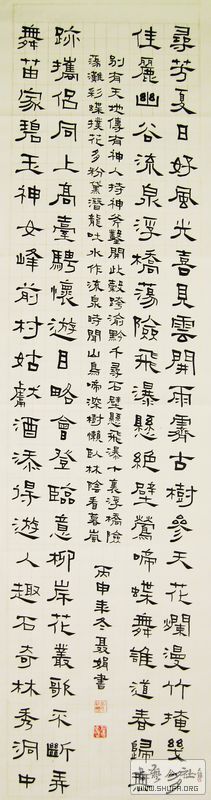 尋芳夏日好風光喜見雲開雨霽古樹參天花爛漫竹掩幾多
佳麗幽谷流泉浮橋蕩險飛瀑懸絕壁鶯啼蝶舞誰道春歸無
別有天地傳有神人持神斧鑿開此壑跨渝黔千尋石壁懸飛瀑十裏浮橋險
蕩灘彩蝶撲花多粉黛潛龍吐水作流泉時聞山鳥啼深樹懶臥林陰看暮嵐
丙申年冬聶娟書
跡攜侶同上高臺騁懷遊目略會登臨意柳岸花叢歌不斷弄
舞苗家碧玉神女峰前村姑獻酒添得遊人趣石奇林秀洞中
www.SHUFA.org